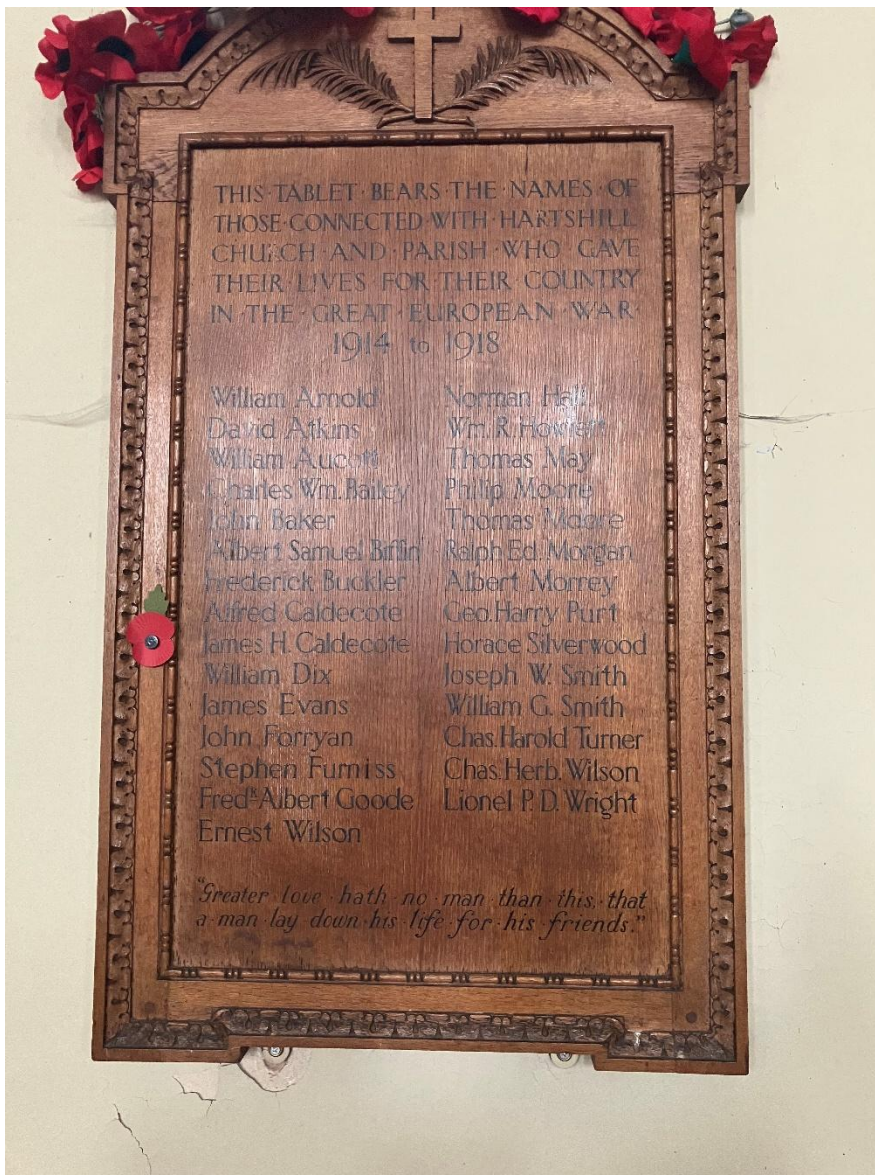 THIS·TABLET·BEARS·THE·NAMES·OF
THOSE·CONNECTED·WITH·HARTSHILL
CHURCH·AND·PARISH·WHO·GAVE
THEIR·LIVES·FOR·THEIR·COUNTRY
IN·THE·GREAT·EUROPEAN·WAR
1914 to 1918
William Arnold
David Atkins
William Aucott
Charles Wm. Bailey
John Baker
Albert Samuel Biffin
Frederick Buckler
Alfred Caldecote
James H. Caldecote
William Dix
James Evans
John Forryan
Stephen Furniss
Fredk Albert Goode
Ernest Wilson
Norman Hall
Wm. R. Howlett
Thomas May
Philip Moore
Thomas Moore
Ralph Ed. Morgan
Albert Morrey
Geo. Harry Purt
Horace Silverwood
Joseph W. Smith
William G. Smith
Chas. Harold Turner
Chas. Herb. Wilson
Lionel P. D. Wright
"Greater·love·hath·no·man·than·this,·that
a·man·lay·down·his·life·for·his·friends."